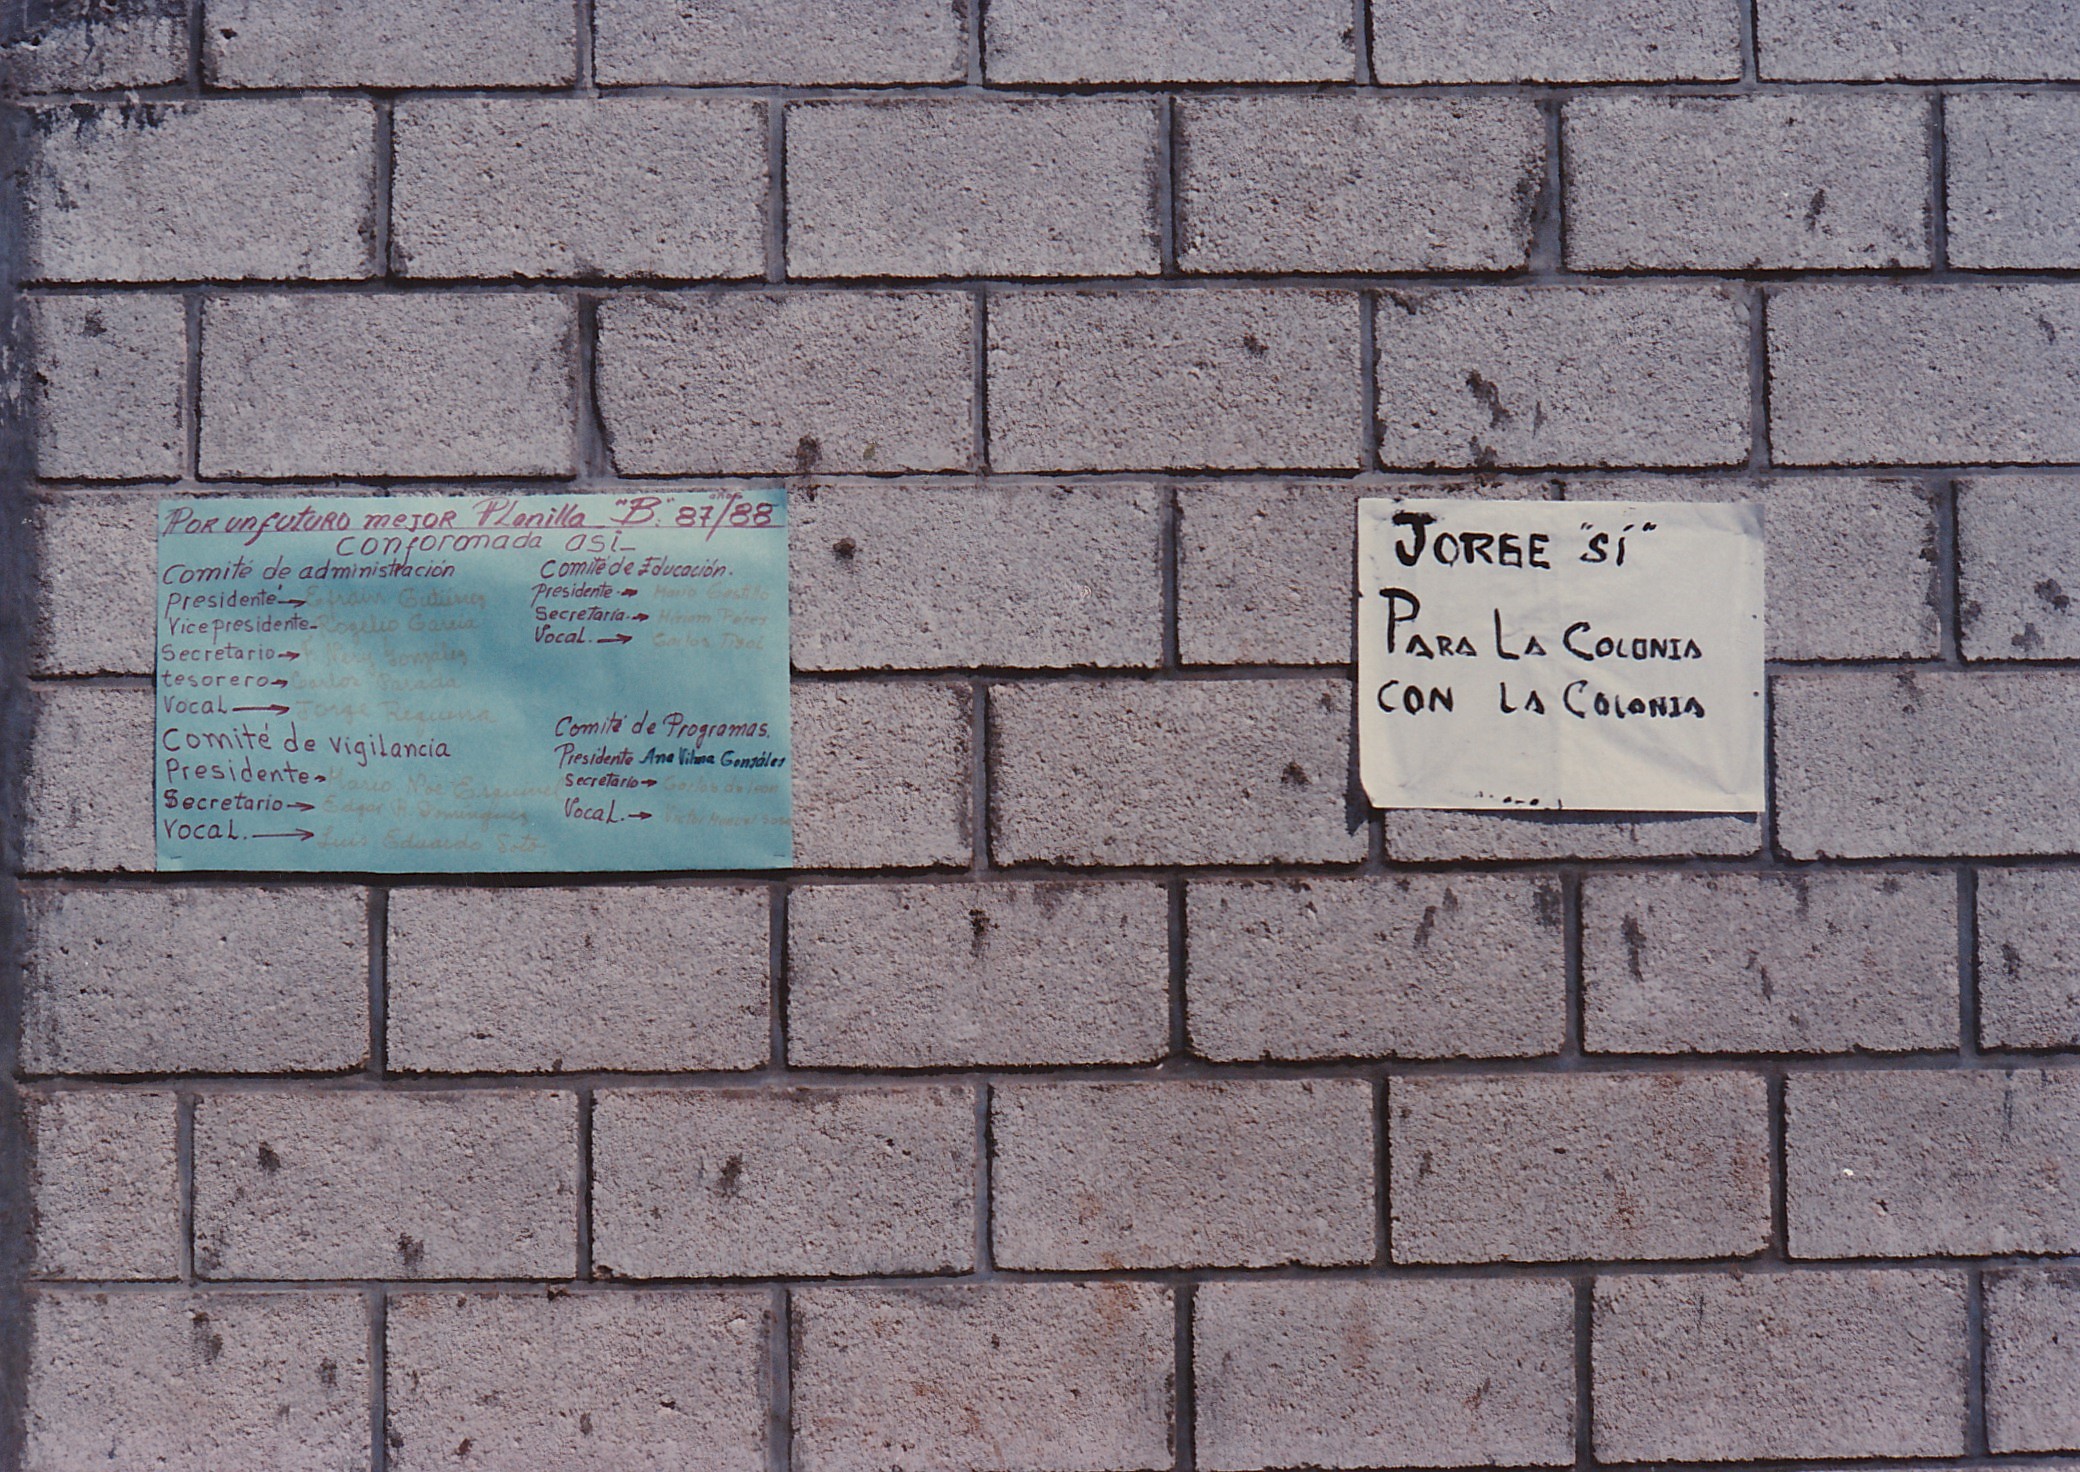 Por un futuro mejor Planilla "B". años 87/88
conforomada asi_
Comité de administración
Presidente → Efraín Gutiérrez
Vice presidente- Rogelio García
Secretario → F. Nery González
tesorero → Carlos Parada
Vocal → Jorge Requena
Comité de vigilancia
Presidente → Mario Noé Esquivel
Secretario → Edgar R. Domínguez
Vocal. → Luis Eduardo Soto
Comité de Educación.
Presidente. → Mario Castillo
Secretaría. → Miriam Pérez
Vocal. → Carlos
Comité de Programas.
Presidente Ana Vilma González
Secretario → Carlos de León
Vocal. → Victor Manuel Sosa
JORGE "SÍ"
PARA LA COLONIA
CON LA COLONIA